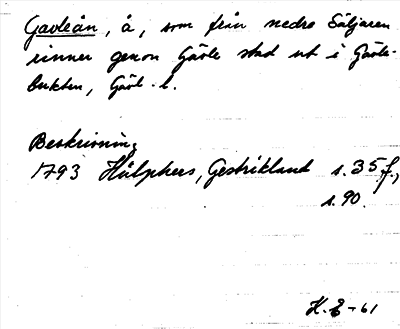 Gavleån, å, som från nedre Säljaren
rinner genom Gävle stad ut i Gävle-
bukten, Gävl. l.
Beskrivning
1793 Hülphers, Gestrikland s. 35 f.,
s. 90.
H. E -61